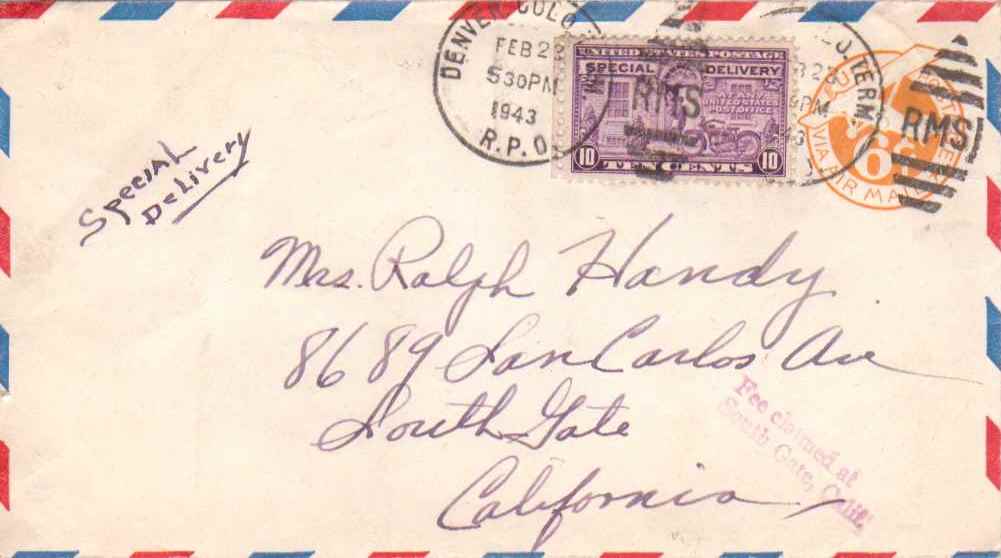 DENVER COLO
FEB 2
530PM
1943
R.P.O.
UNITED STATES POSTAGE
SPECIAL DELIVERY
AT ANY
UNITED STATES
POST OFFICE
10 TEN CENTS 10
RMS
TERM
PM
6¢
VIA AIR MAIL
RMS
Special
Delivery
Mrs. Ralph Handy
8689 San Carlos Ave
South Gate
California
Fee claimed at
South Gate, Calif.